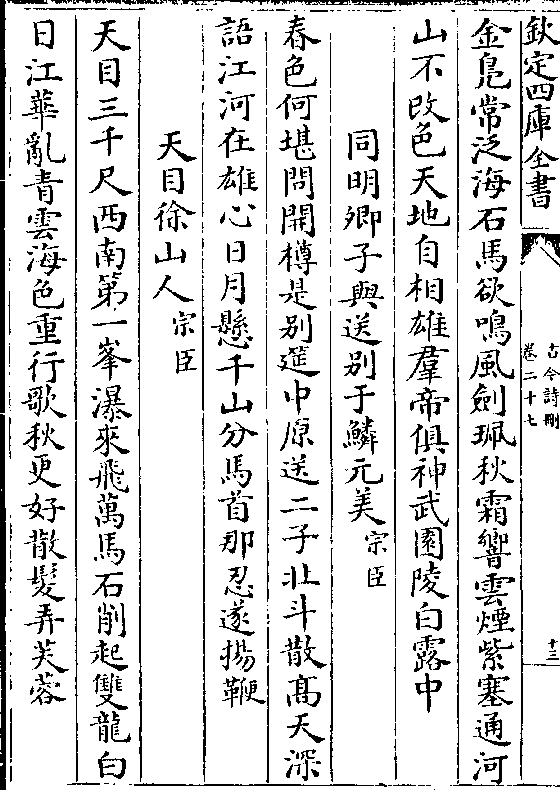 欽定四庫全書
古今詩刪
卷二十七
十三
金鳬常泛海石馬欲鳴風劍珮秋霜響雲煙紫塞通河
山不改色天地自相雄羣帝俱神武園陵白露中
同明卿子與送别于鱗元美宗臣
春色何堪問開樽是别筵中原送二子北斗散髙天深
語江河在雄心日月懸千山分馬首那忍遂揚鞭
天目徐山人宗臣
天目三千尺西南第一峯瀑來飛萬馬石削起雙龍白
日江華亂青雲海色重行歌秋更好散髮弄芙蓉